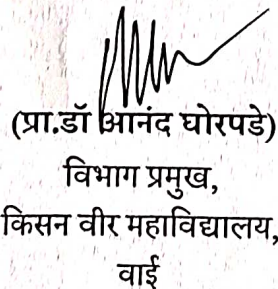 (प्रा.डॉ आनंद घोरपडे)
विभाग प्रमुख,
किसन वीर महाविद्यालय,
वाई